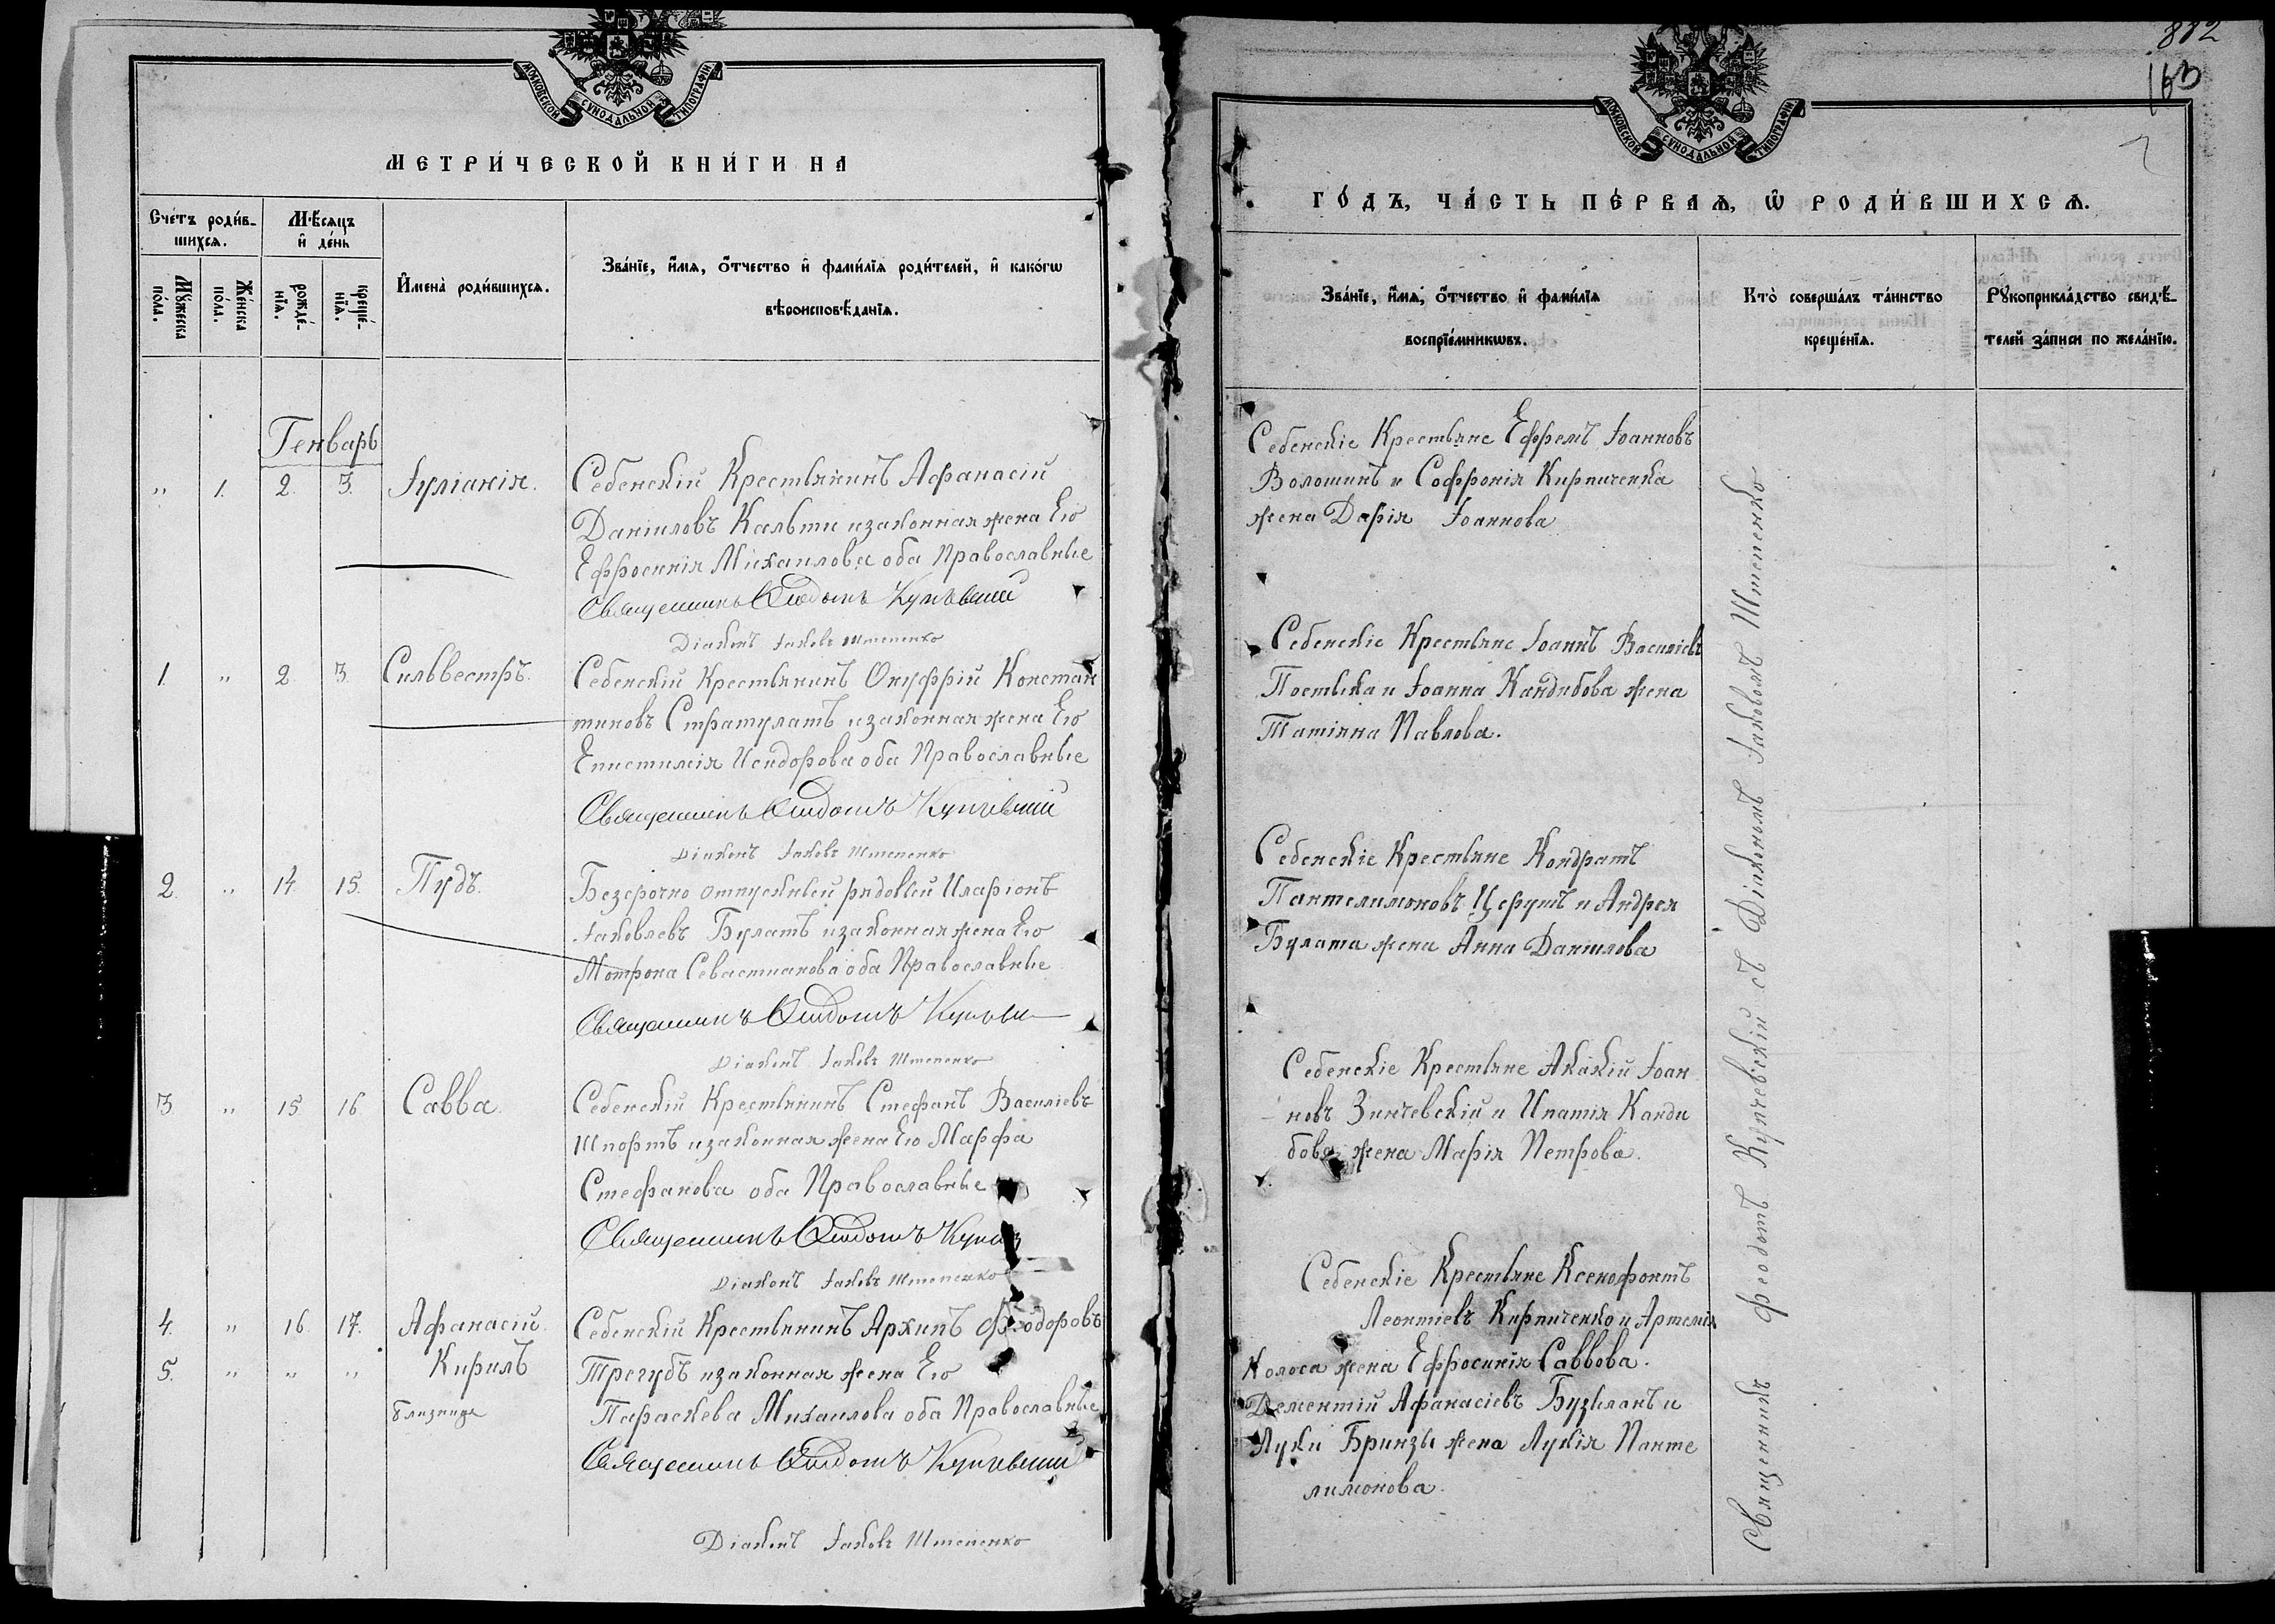 МОСКОВСКОЙ СѴНОДАЛЬНОЙ ТИПОГРАФІИ
МЕТРИ́ЧЕСКОЙ КНИ́ГИ НА
Сче́тъ роди́в-
шихсѧ.
Мꙋ́жеска
по́ла.
Же́нска
по́ла.
Мѣ́сѧцъ
и҆ де́нь
рожде́-
нїѧ.
креще́-
нїѧ.
И҆мена̀ роди́вшихсѧ.
Зва́нїе, и҆́мѧ, ѻ҆́тчество и҆ фами́лїѧ роди́телей, и҆ како́гѡ
вѣроисповѣ́данїѧ.
Генварь
" 1. 2. 3. Іуліанія. Себенскій Крестьянинъ Афанасій
Даніиловъ Кальти изаконная жена Его
Ефросинія Михаилова оба Православные
Священникъ Феодотъ Купчевскій
Діаконъ Іаковъ Штепенко
1. " 2. 3. Сильвестръ. Себенскій Крестьянинъ Онуфрій Констан
тиновъ Стратулатъ изаконная жена Его
Епистимія Исидорова оба Православные
Священникъ Феодотъ Купчевскій
Діаконъ Іаковъ Штепенко
2. " 14. 15. Пудъ. Безсрочно отпускный рядовый Иларіонъ
Іаковлевъ Булатъ изаконная жена Его
Мотрона Севастианова оба Православные
Священникъ Феодотъ
Діаконъ Іаковъ Штепенко
3 " 15 16. Савва. Себенскій Крестьянинъ Стефанъ Василіевъ
Шпортъ изаконная жена Его Марфа
Стефанова оба Православные
Священникъ Феодотъ
Діаконъ Іаковъ Штепенко
4. " 16. 17. Афанасій. Себенскій Крестьянинъ Архипъ Феодоровъ
5. " " " Кирилъ Трегубъ изаконная жена Его
близнецы Параскева Михаилова оба Православные
Священникъ Феодотъ Купчевскій
Діаконъ Іаковъ Штепенко
872
163
МОСКОВСКОЙ СѴНОДАЛЬНОЙ ТИПОГРАФІИ
ГО́ДЪ, ЧА́СТЬ ПЕ́РВАѦ, Ѡ҆ РОДИ́ВШИХСѦ.
Зва́нїе, и҆́мѧ, ѻ҆́тчество и҆ фами́лїѧ
воспрїе́мникѡвъ.
Кто̀ соверша́лъ та́инство
креще́нїѧ.
Рꙋкоприкла́дство свидѣ́-
телей за́писи по жела́нїю.
Себенскіе Крестьяне Ефремъ Іоанновъ
Волошинъ и Софронія Кирпиченка
жена Дарія Іоаннова
Себенскіе Крестьяне Іоаннъ Василіевъ
Постыка и Іоанна Кандибова жена
Татіяна Павлова.
Себенскіе Крестьяне Кондратъ
Пантелимоновъ Церутъ и Андрея
Булата жена Анна Даніилова
Себенскіе Крестьяне Акакій Іоан
новъ Зинчевскій и Ипатія Канди
бова жена Марія Петрова.
Себенскіе Крестьяне Ксенофонтъ
Леонтіевъ Кирпиченко и Артемія
Колоса жена Ефросинія Саввова.
Дементій Афанасіевъ Бузиланъ и
Луки Бринзы жена Лукія Панте
лимонова.
Священникъ Феодотъ Купчевскій съ Діакономъ Іаковомъ Штепенко